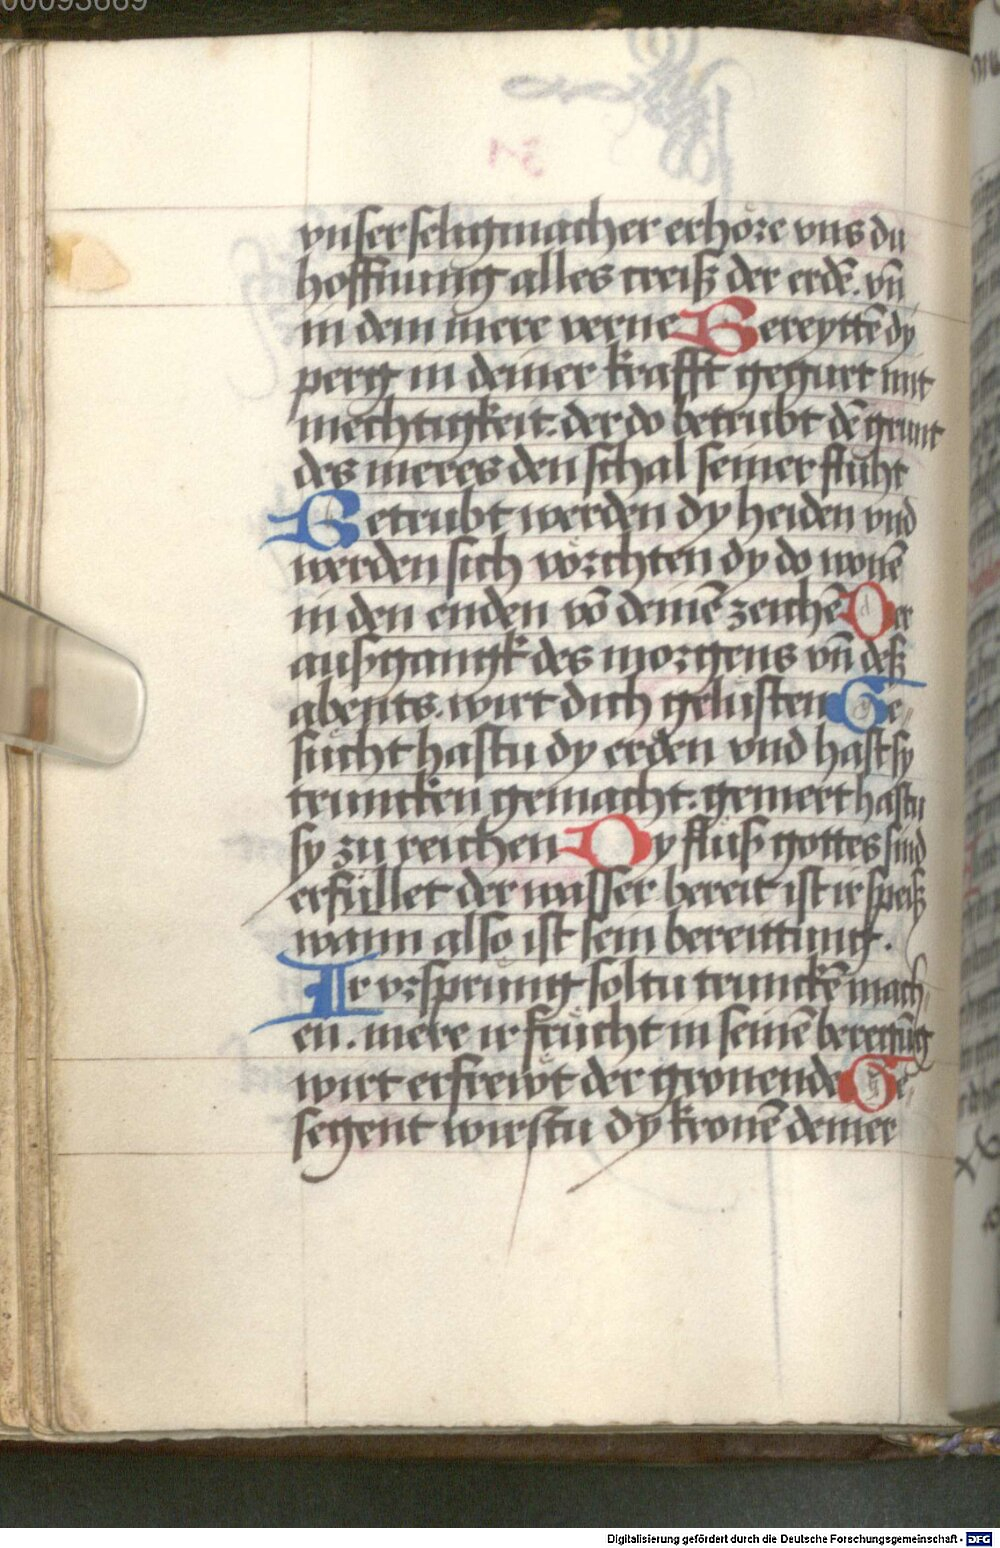 00093669
31
vnser seligmacher erhöre vns du
hoffnung alles creiß der erdē. vn̄
in dem mere verne Bereyttē dy
perg in deiner krafft gegurt mit
mechtigkeit. der do betrubt dē grunt
des meres den schal seiner flüht
Betrubt werden dy heiden vnd
werden sich vörchten dy do wonē
in den enden vō deinē zeichē Der
außgangk des morgens vn̄ deß
abents. wirt dich gelüsten Ge„
sücht hastu dy erden vnd hast sy
truncken gemacht. gemert hastu
sy zu reichen Dy flüß gottes sind
erfüllet der wasser bereit ist ir speiß
wann also ist sein bereittung.
Ir vrsprüng soltu trunckē mach„
en. mere ir frücht in seinē bereyūg
wirt erfrewt der gronende Ge„
segent wirstu dy kronē deiner
Digitalisierung gefördert durch die Deutsche Forschungsgemeinschaft - DFG